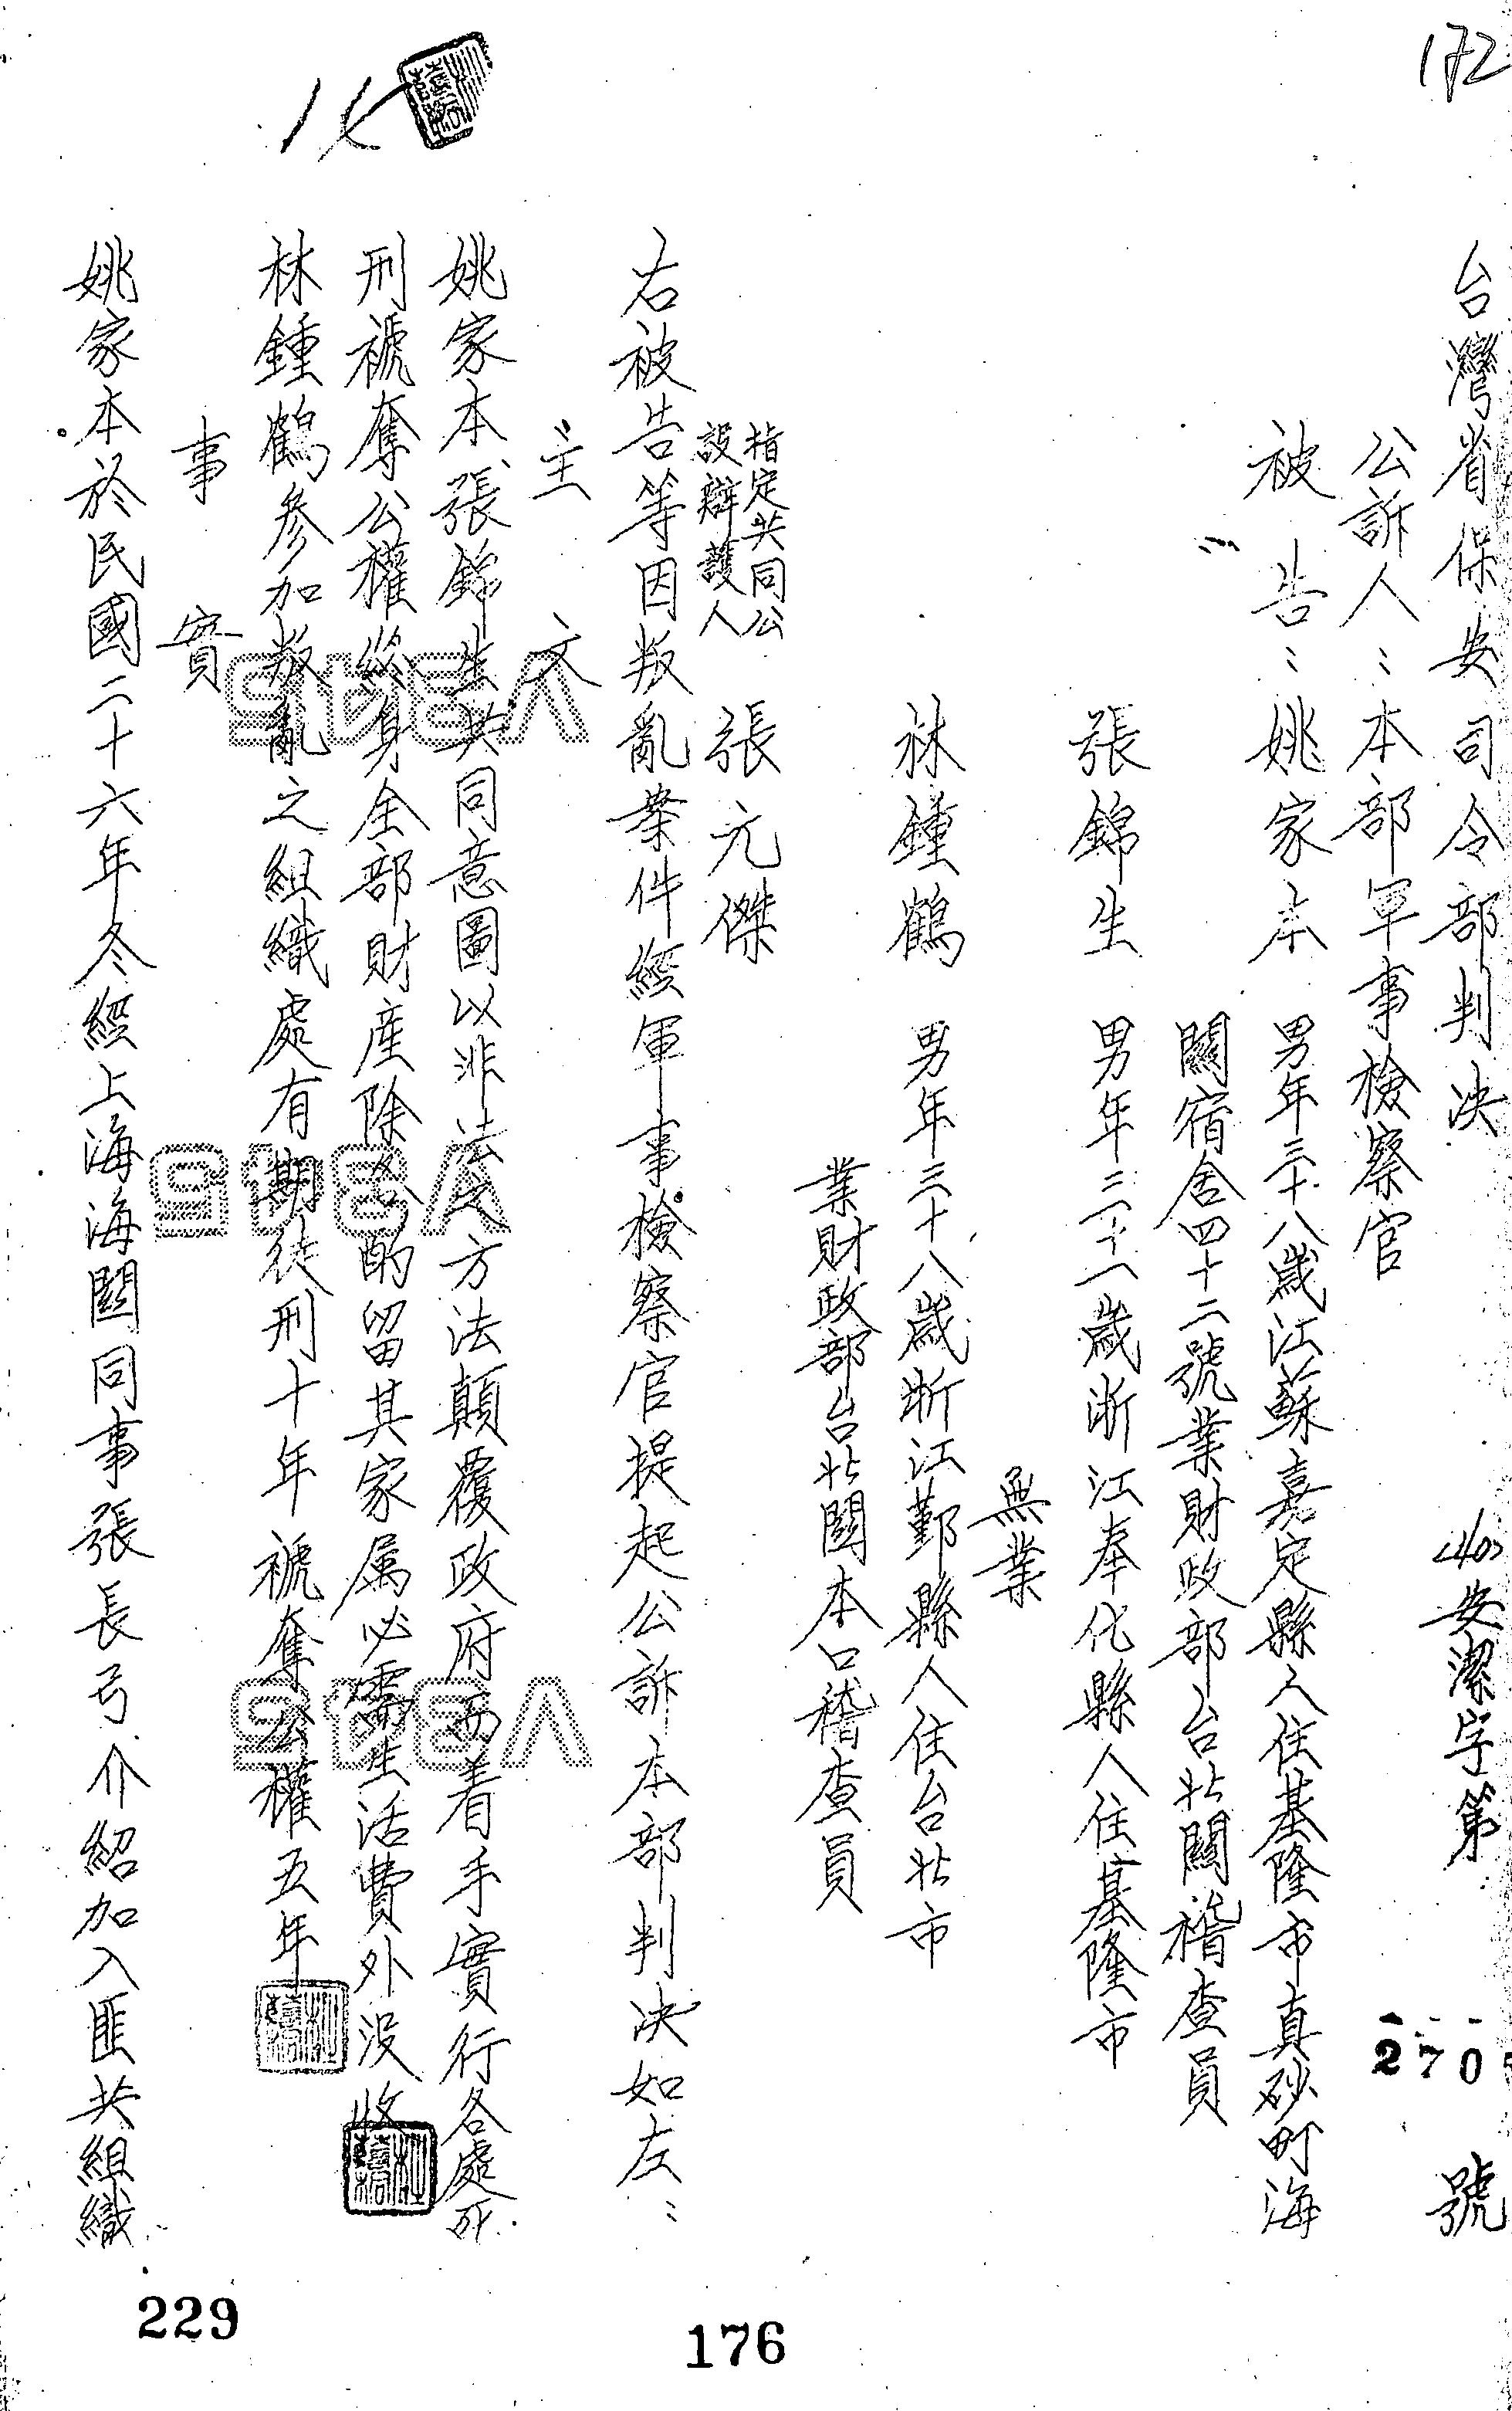 172
台灣省保安司令部判决
(40)安潔字第
2705
號
公訴人：本部軍事檢察官
被告：姚家本 男年三十八歲江蘇嘉定縣人住基隆市真砂町海
關宿舍四十二號業財政部台北關稽查員
張錦生 男年三十一歲浙江奉化縣人住基隆市
無業
林鍾鶴 男年三十八歲浙江鄞縣人住台北市
業財政部台北關本口稽查員
指定共同公
設辯護人 張元傑
右被告等因叛亂案件經軍事檢察官提起公訴本部判决如左：
主文
姚家本張錦生共同意圖以非法之方法顛覆政府而着手實行各處死
刑褫奪公權終身全部財產除各酌留其家属必需生活費外没收
林鍾鶴參加叛亂之組織處有期徒刑十年褫奪公權五年
事實
姚家本於民國二十六年冬經上海海關同事張長弓介紹加入匪共組織
229
176